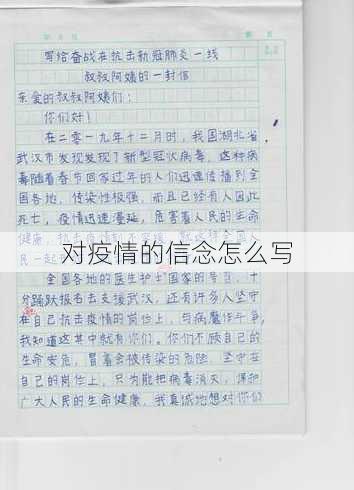 写给奋战在抗击新冠肺炎一线
叔叔阿姨的一封信
亲爱的叔叔阿姨们：
你们好！
在二零一九年十二月时，我国湖北省
武汉市发现发现了新型冠状病毒，这种病
毒随着春节回家过年的人们迅速传播到全
国各地，传染性极强，而且已经有人因此
死亡，疫情迅速漫延，危害着人民的生命
健康，
民一起
对疫情的信念怎么写
全国各地的医生护士国家的号召，十
分踊跃报名去支援武汉，还有许多人坚守
在自己抗击疫情的岗位上，与病魔作斗争，
我知道这其中就有你们。你们不顾自己的
生命安危，冒着会被传染的危险，坚守在
自己的岗位上，只为能把病毒消灭，保护
广大人民的生命健康，我真诚地想对你们